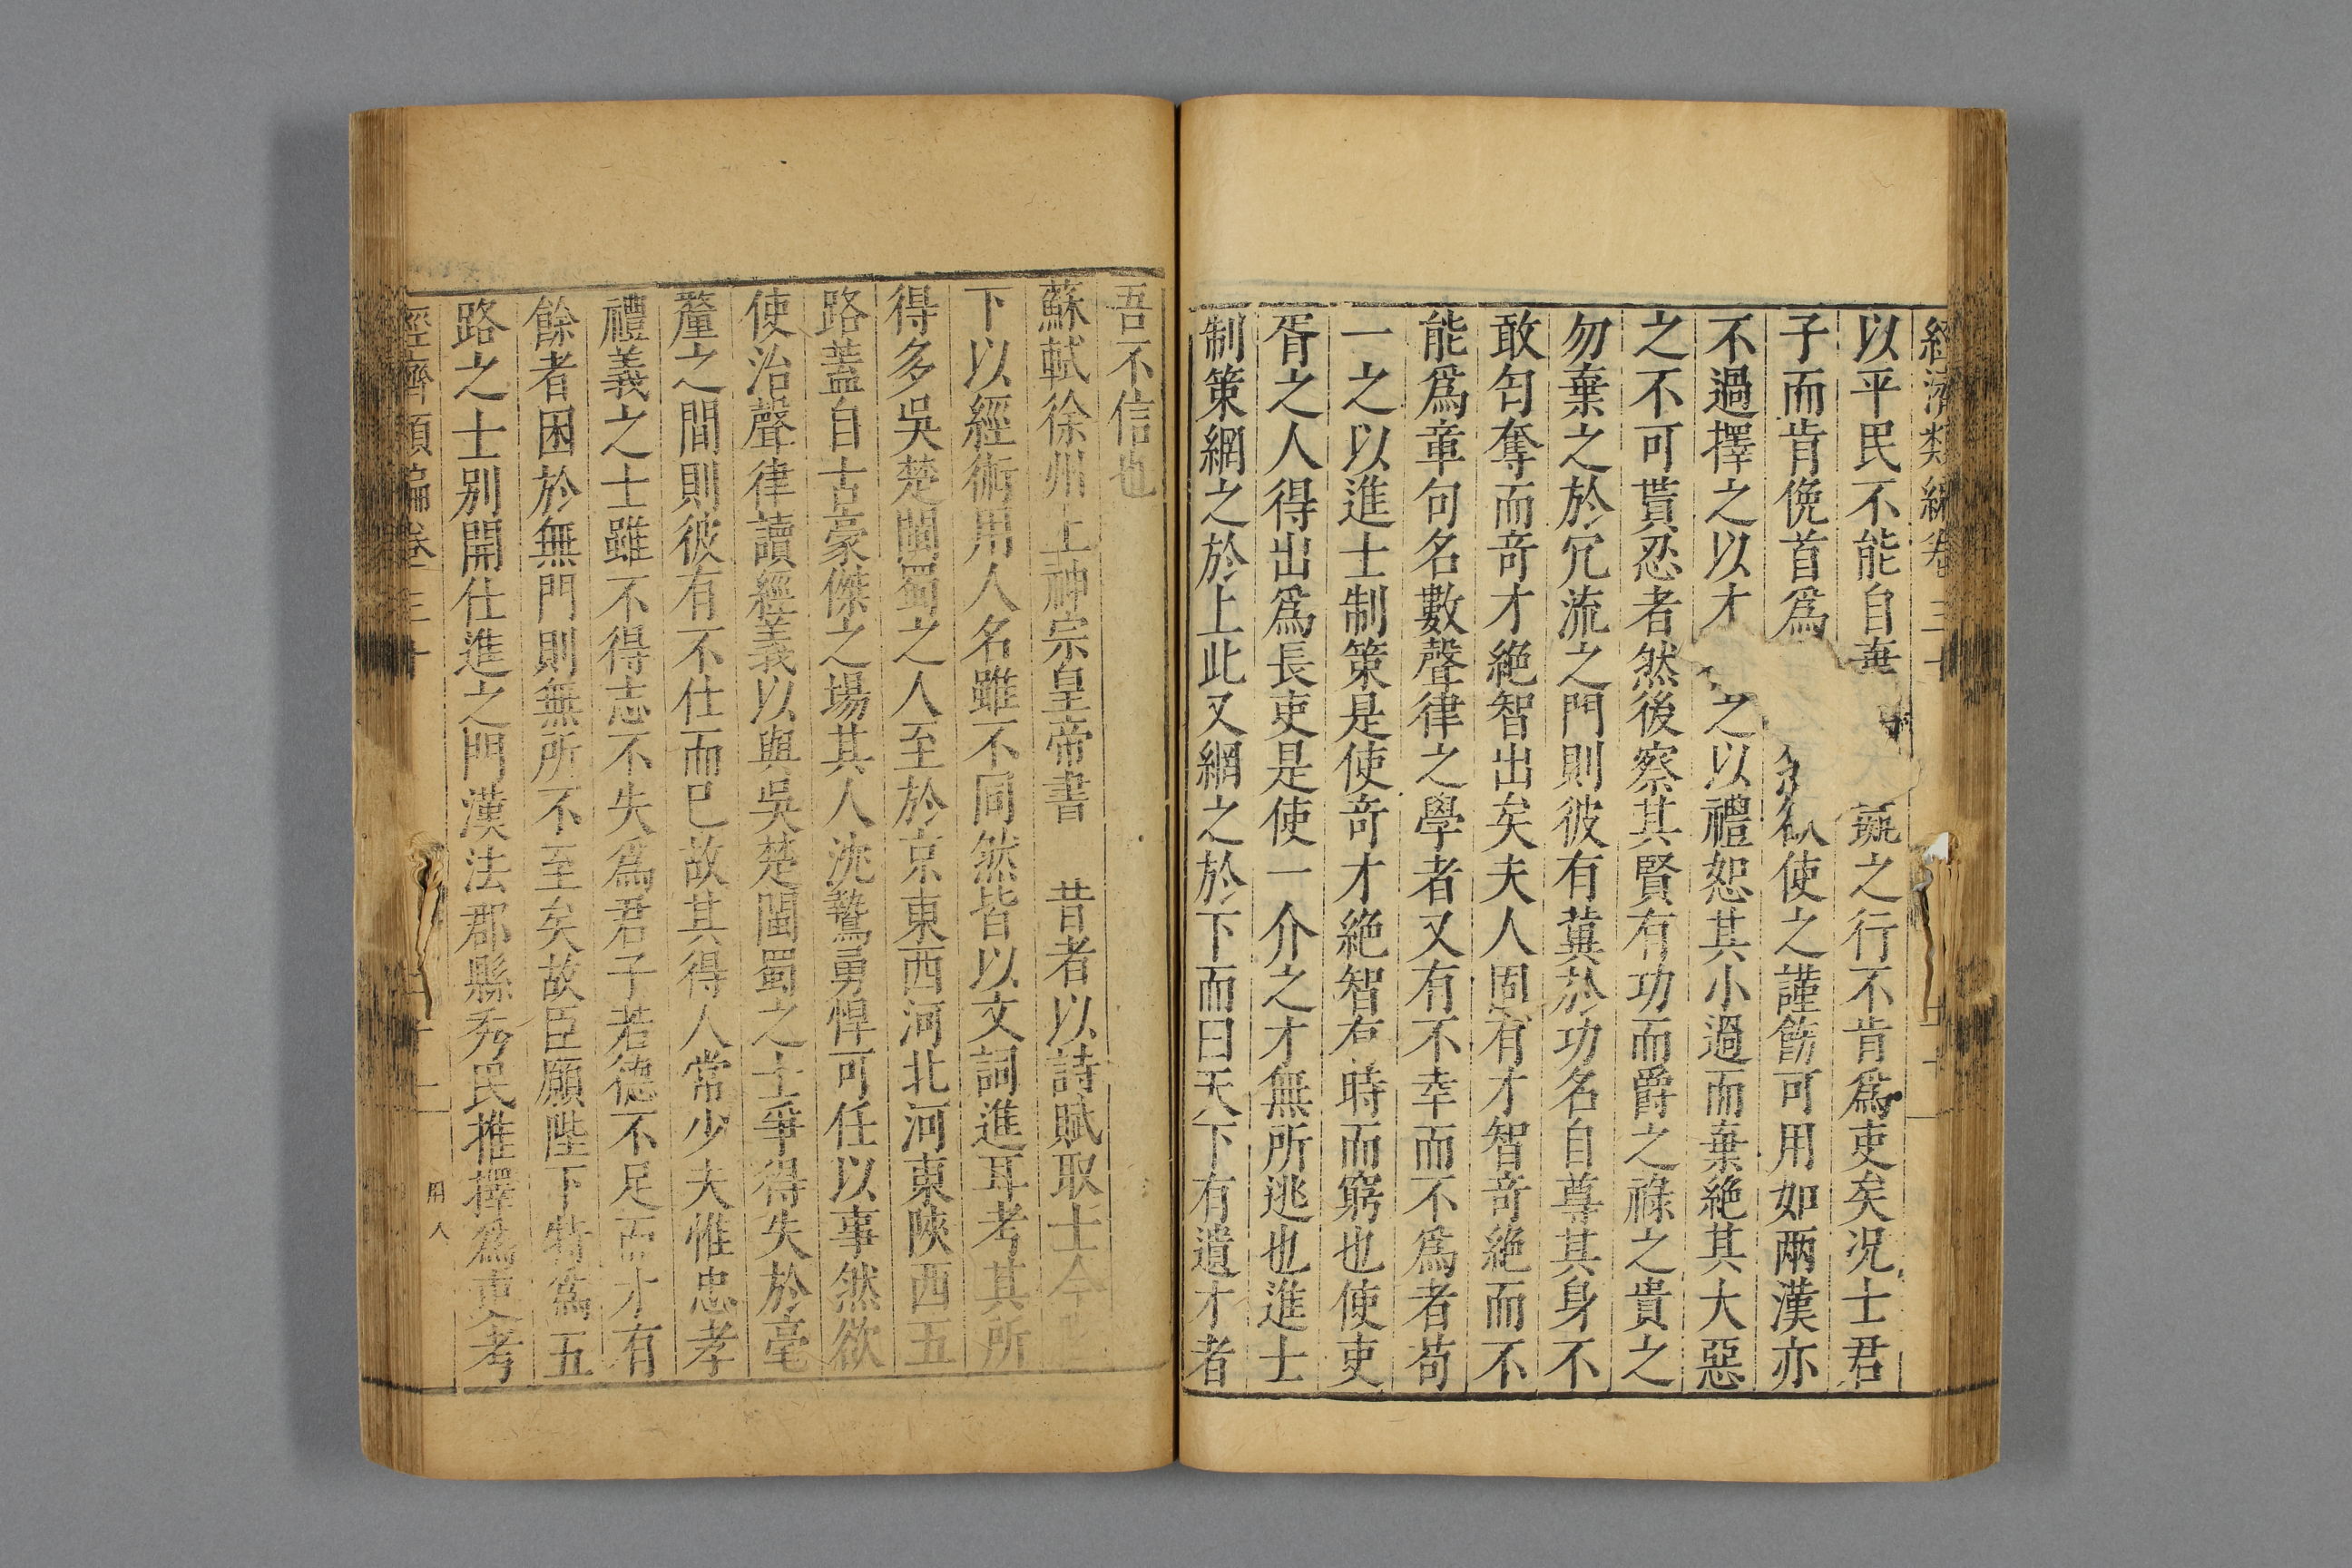 經濟類編卷三十
以平民不能自棄之行不肯爲吏矣况士君
子而肯俛首爲使之謹飭可用如兩漢亦
不過擇之以才之以禮恕其小過而棄絶其大惡
之不可貰忍者然後察其賢有功而爵之祿之貴之
勿棄之於冗流之門則彼有冀於功名自尊其身不
敢匄奪而竒才絶智出矣夫人固有才智竒絶而不
能爲章句名數聲律之學者又有不幸而不爲者苟
一之以進士制策是使竒才絶智有時而窮也使吏
胥之人得出爲長吏是使一介之才無所逃也進士
制策網之於上此又網之於下而曰天下有遺才者
吾不信也
蘇軾徐州上神宗皇帝書 昔者以詩賦取士今
下以經術用人名雖不同然皆以文詞進耳考其所
得多吳楚閩蜀之人至於京東西河北河東陜西五
路蓋自古豪傑之場其人沈鷙勇悍可任以事然欲
使治聲律讀經義以與吳楚閩蜀之士爭得失於毫
釐之間則彼有不仕而巳故其得人常少夫惟忠孝
禮義之士雖不得志不失爲君子若德不足而才有
餘者困於無門則無所不至矣故臣願陛下特爲五
路之士別開仕進之門漢法郡縣秀民推擇爲吏考
經濟類編卷三十 用人